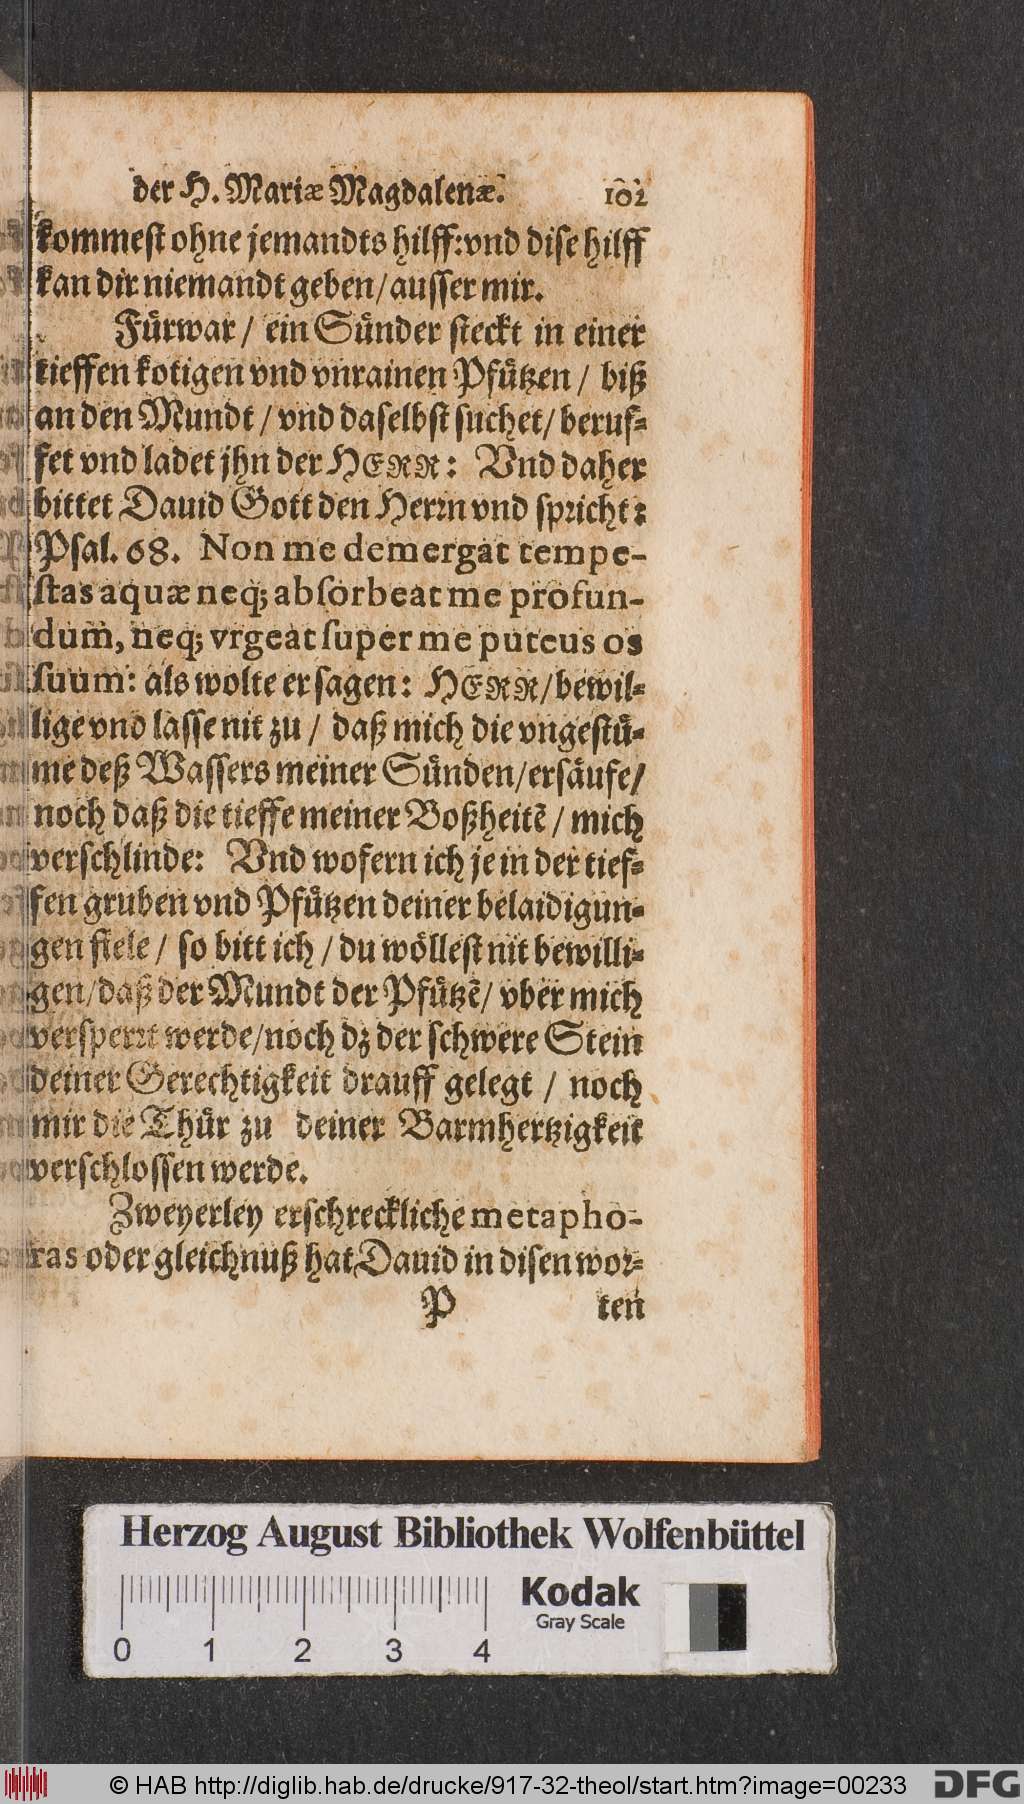 der H. Mariæ Magdalenæ. 102
kommest ohne jemandts hilff: vnd dise hilff
kan dir niemandt geben/ ausser mir.
Fürwar / ein Sünder steckt in einer
tieffen kotigen vnd vnrainen Pfützen / biß
an den Mundt / vnd daselbst suchet / beruf-
fet vnd ladet jhn der HERR: Vnd daher
bittet Dauid Gott den Herrn vnd spricht:
Psal. 68. Non me demergat tempe-
stas aquæ neq; absorbeat me profun-
dum, neq; vrgeat super me puteus os
suum: als wolte er sagen: HERR/ bewil-
lige vnd lasse nit zu / daß mich die vngestü-
me deß Wassers meiner Sünden/ersäufe/
noch daß die tieffe meiner Boßheitẽ / mich
verschlinde: Vnd wofern ich je in der tief-
fen gruben vnd Pfützen deiner belaidigun-
gen fiele / so bitt ich / du wöllest nit bewilli-
gen/daß der Mundt der Pfützẽ/ vber mich
versperrt werde/noch dz der schwere Stein
deiner Gerechtigkeit drauff gelegt / noch
mir die Thür zu deiner Barmhertzigkeit
verschlossen werde.
Zweyerley erschreckliche metapho-
ras oder gleichnuß hat Dauid in disen wor-
P ten
Herzog August Bibliothek Wolfenbüttel
Kodak
Gray Scale
0 1 2 3 4
© HAB http://diglib.hab.de/drucke/917-32-theol/start.htm?image=00233
DFG